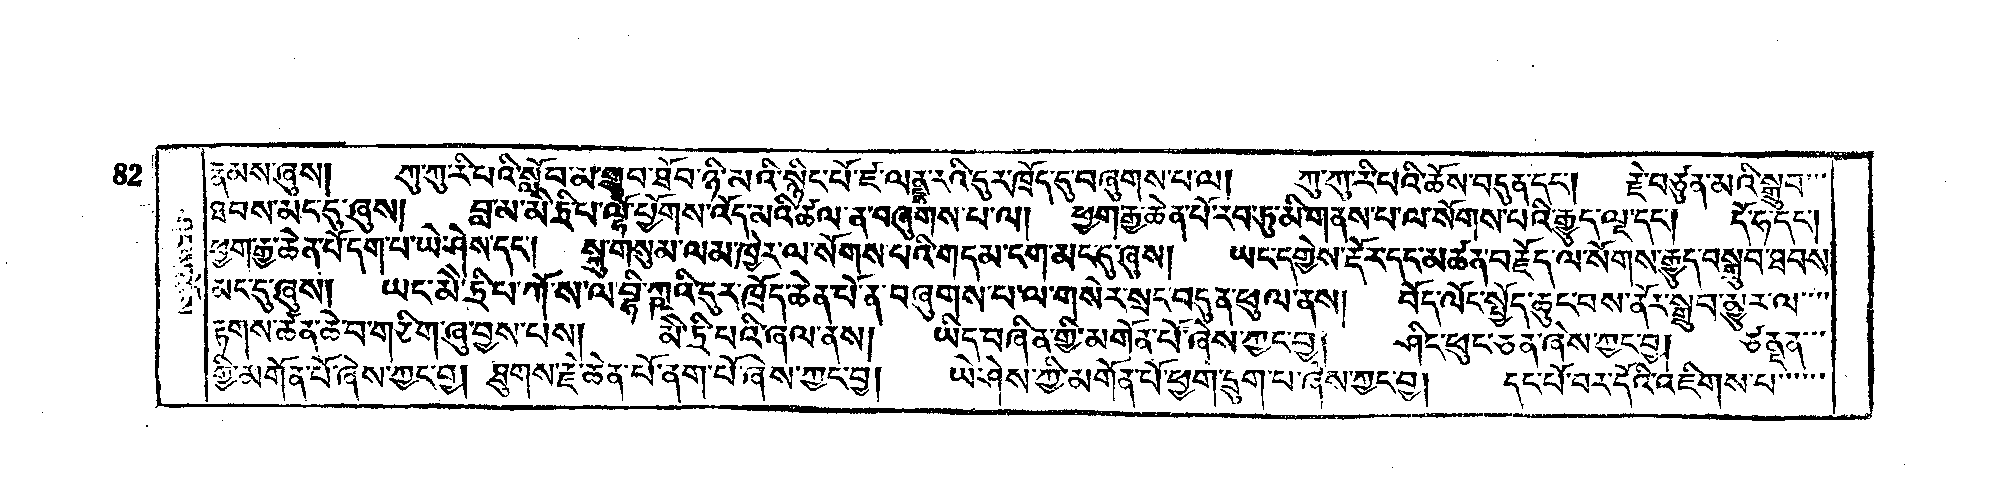 82
རྣམས་ཞུས། ཀུ་ཀུ་རི་པའི་སློབ་མ་གྲུབ་ཐོབ་ཉི་མའི་སྙིང་པོ་ཛ་ལནྡྷརའི་དུར་ཁྲོད་དུ་བཞུགས་པ་ལ། ཀུ་ཀུ་རི་པའི་ཆོས་བདུན་དང་། རྗེ་བཙུན་མའི་སྒྲུབ་
ཐབས་མང་དུ་ཞུས། བླ་མ་མེ་ཏྲི་པ་ལྷོ་ཕྱོགས་འོད་མའི་ཚལ་ན་བཞུགས་པ་ལ། ཕྱག་རྒྱ་ཆེན་པོ་རབ་ཏུ་མི་གནས་པ་ལ་སོགས་པའི་རྒྱུད་ལྔ་དང་། དོ་ཧ་དང་།
ཕྱག་རྒྱ་ཆེན་པོ་དག་པ་ཡེ་ཤེས་དང་། སྐུ་གསུམ་ལམ་ཁྱེར་ལ་སོགས་པའི་གདམ་ངག་མང་དུ་ཞུས། ཡང་དགྱེས་རྡོར་དང་མཚན་བརྗོད་ལ་སོགས་རྒྱུད་བསྒྲུབ་ཐབས་
མང་དུ་ཞུས། ཡང་མེ་ཏྲི་པ་ཀོ་ས་ལ་བྷི་ཀླའི་དུར་ཁྲོད་ཆེན་པོ་ན་བཞུགས་པ་ལ་གསེར་སྲང་བདུན་ཕུལ་ནས། བོད་ལོང་སྤྱོད་ཆུང་བས་ནོར་སྒྲུབ་མྱུར་ལ་
རྟགས་ཚན་ཆེ་བ་གཅིག་ཞུ་བྱས་པས། མེ་ཏྲི་པའི་ཞལ་ནས། ཡིད་བཞིན་གྱི་མགོན་པོ་ཞེས་ཀྱང་བྱ། ཤིང་ཕུང་ཅན་ཞེས་ཀྱང་བྱ། ཙནྡན་
ཀྱི་མགོན་པོ་ཞེས་ཀྱང་བྱ། ཐུགས་རྗེ་ཆེན་པོ་ནག་པོ་ཞེས་ཀྱང་བྱ། ཡེ་ཤེས་ཀྱི་མགོན་པོ་ཕྱག་དྲུག་པ་ཞེས་ཀྱང་བྱ། དང་པོ་བར་དོའི་འཇིགས་པ་